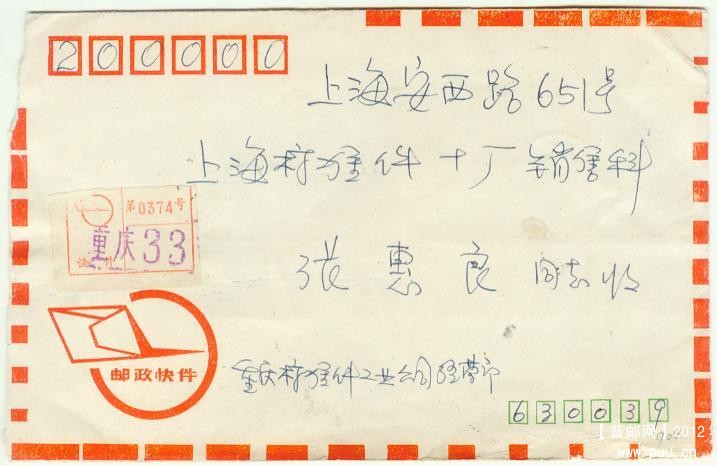 200000
上海安西路651号
上海标准件十厂销售科
第0374号
重庆33
快件
张惠良 同志收
邮政快件
重庆标准件工业公司经营部
630039
【普邮网】2012
www.puu.cn